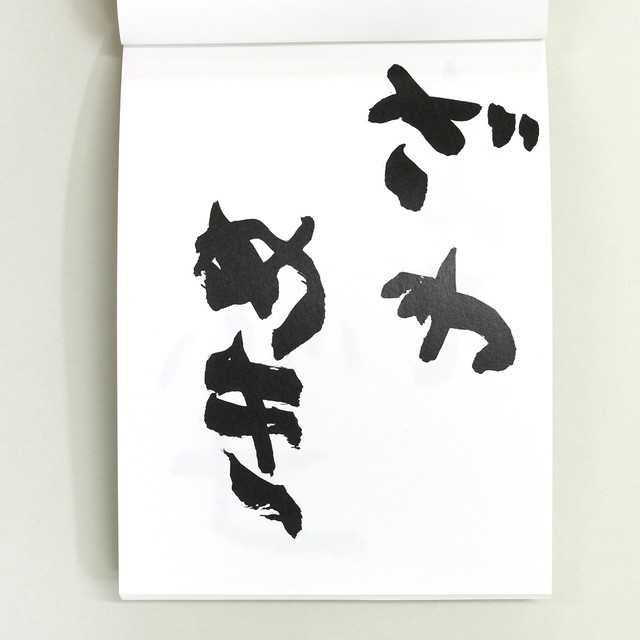 ざわ
めき